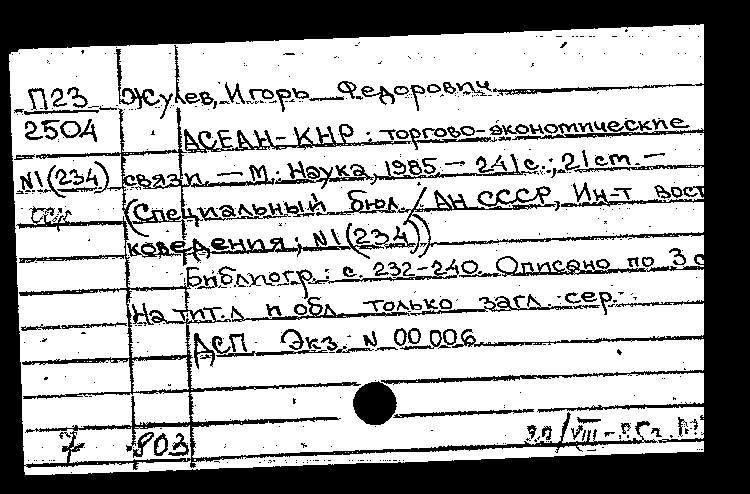 П23 Жулев, Игорь Федорович
2504 АСЕАН-КНР: торгово-экономические
N1(234) связи. — М.: Наука, 1985. — 241 с.; 21 см. —
(Специальный бюл. / АН СССР, Ин-т вост
коведения; N1(234))
Библиогр.: с. 232-240. Описано по 3 с
На тит. л и обл. только загл. сер.
ДСП. Экз. N 00006
803